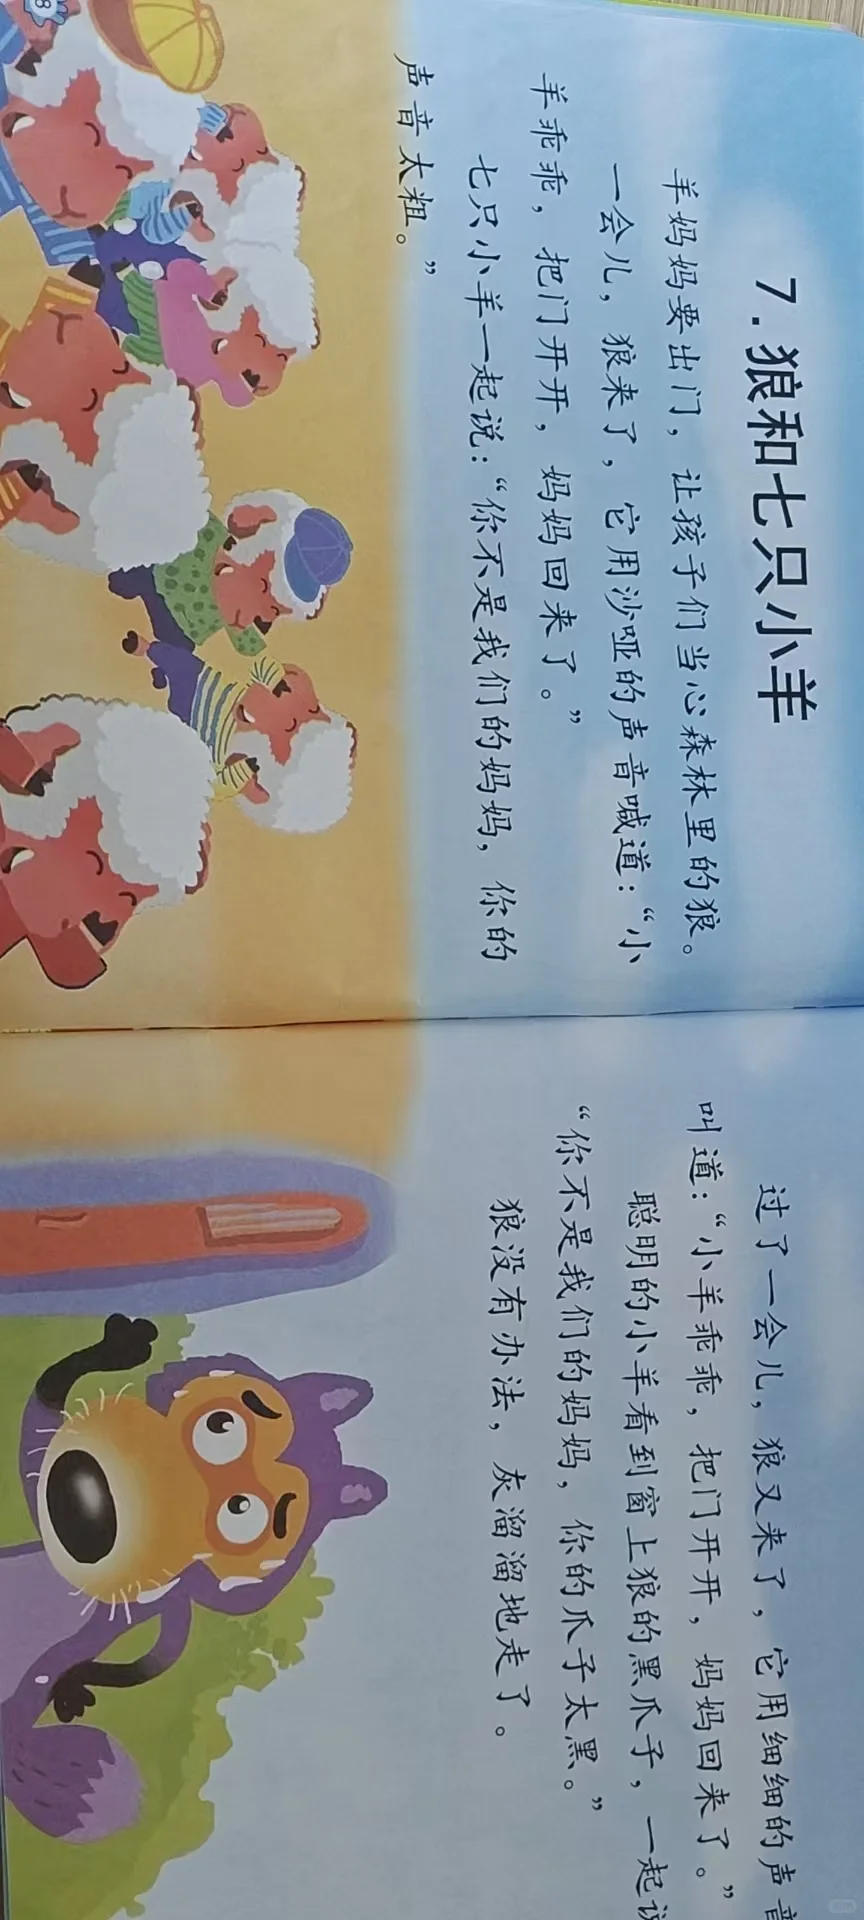 7.狼和七只小羊
羊妈妈要出门，让孩子们当心森林里的狼。
一会儿，狼来了，它用沙哑的声音喊道：“小
羊乖乖，把门开开，妈妈回来了。”
七只小羊一起说：“你不是我们的妈妈，你的
声音太粗。”
8
过了一会儿，狼又来了，它用细细的声音
叫道：“小羊乖乖，把门开开，妈妈回来了。”
聪明的小羊看到窗上狼的黑爪子，一起说
“你不是我们的妈妈，你的爪子太黑。”
狼没有办法，灰溜溜地走了。